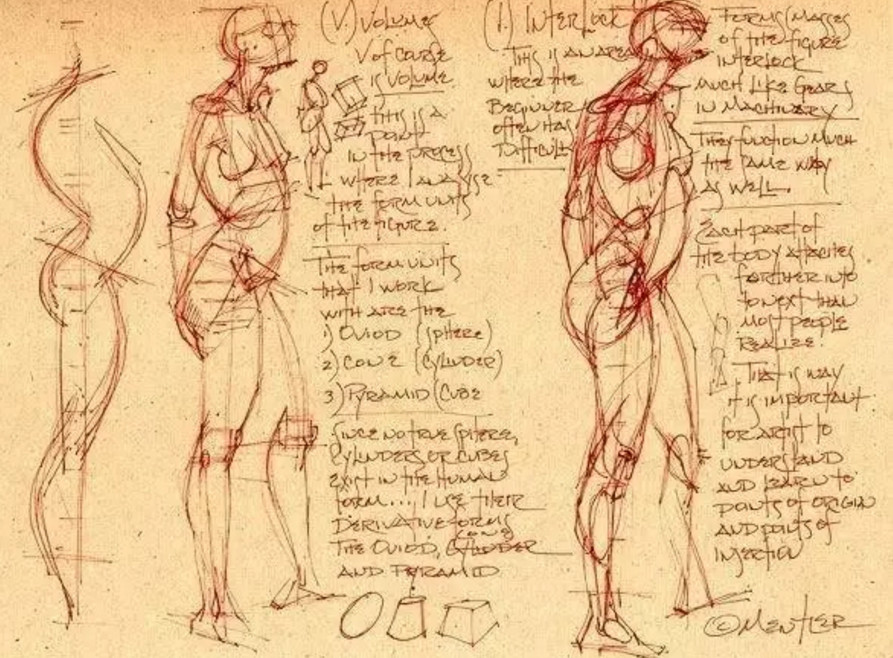 (V.) VOLUMES
V OF COURSE
IS VOLUME
THIS IS A
POINT
IN THE PROCESS
WHERE I ANALYSE
THE FORM UNITS
OF THE FIGURE.
THE FORM UNITS
THAT I WORK
WITH ARE THE
1) OVIOD (SPHERE)
2) CONE (CYLINDER)
3) PYRAMID (CUBE
SINCE NO TRUE SPHERE,
CYLINDERS OR CUBES
EXIST IN THE HUMAN
FORM... I USE THEIR
DERIVATIVE FORMS
CONE
THE OVIOD, CYLINDER
AND PYRAMID
(I.) INTERLOCK
THIS IS AN AREA
WHERE THE
BEGINNER
OFTEN HAS
DIFFICULTY
FORMS/MASSES
OF THE FIGURE
INTERLOCK
MUCH LIKE GEARS
IN MACHINERY
THEY FUNCTION MUCH
THE SAME WAY
AS WELL.
EACH PART OF
THE BODY ATTACHES
FARTHER INTO
TO NEXT THAN
MOST PEOPLE
REALIZE.
THAT IS WAY
IT IS IMPORTANT
FOR ARTIST TO
UNDERSTAND
AND LEARN TO
POINTS OF ORIGIN
AND POINTS OF
INSERTION
© MENTLER